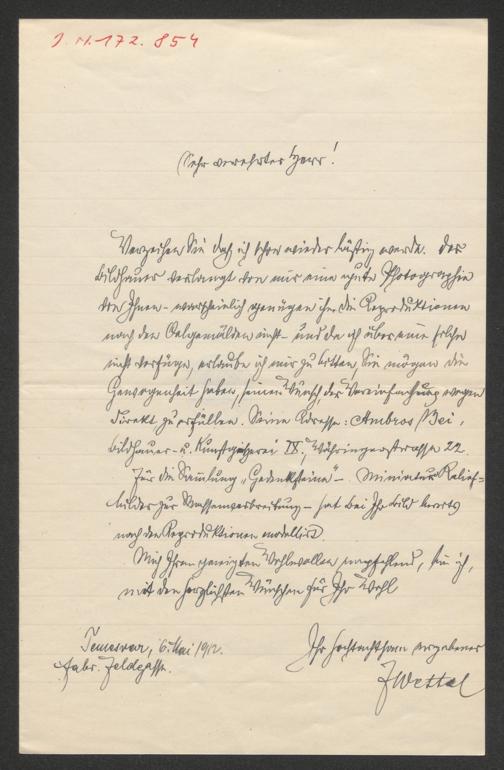 J. N. 172.854
Sehr verehrter Herr!
Verzeihen Sie daß ich schon wieder lästig werde. Der
Bildhauer verlangt von mir eine gute Photographie
von Ihnen – warscheinlich genügen ihm die Reproduktionen
nach den Oelgemälden nicht – und da ich über eine solche
nicht verfüge, erlaube ich mir zu bitten, Sie mögen die
Gewogenheit haben, seinen Wunsch, der Vereinfachung wegen
direkt zu erfüllen. Seine Adresse: Ambros Bei,
Bildhauer- u. Kunstgießerei IX., Währingerstrasse 22.
Für die Sammlung „Gedenksteine" – Miniatur Relief-
bilder zur Massenverbreitung – hat Bei Ihr Bild bereits
nach den Reproduktionen modelliert.
Mich Ihrem geneigten Wohlwollen empfehlend, bin ich,
mit den herzlichsten Wünschen für Ihr Wohl
Ihr hochachtend ergebener
FWettel
Temesvar, 6. Mai 1912.
Fabr. Feldgasse.